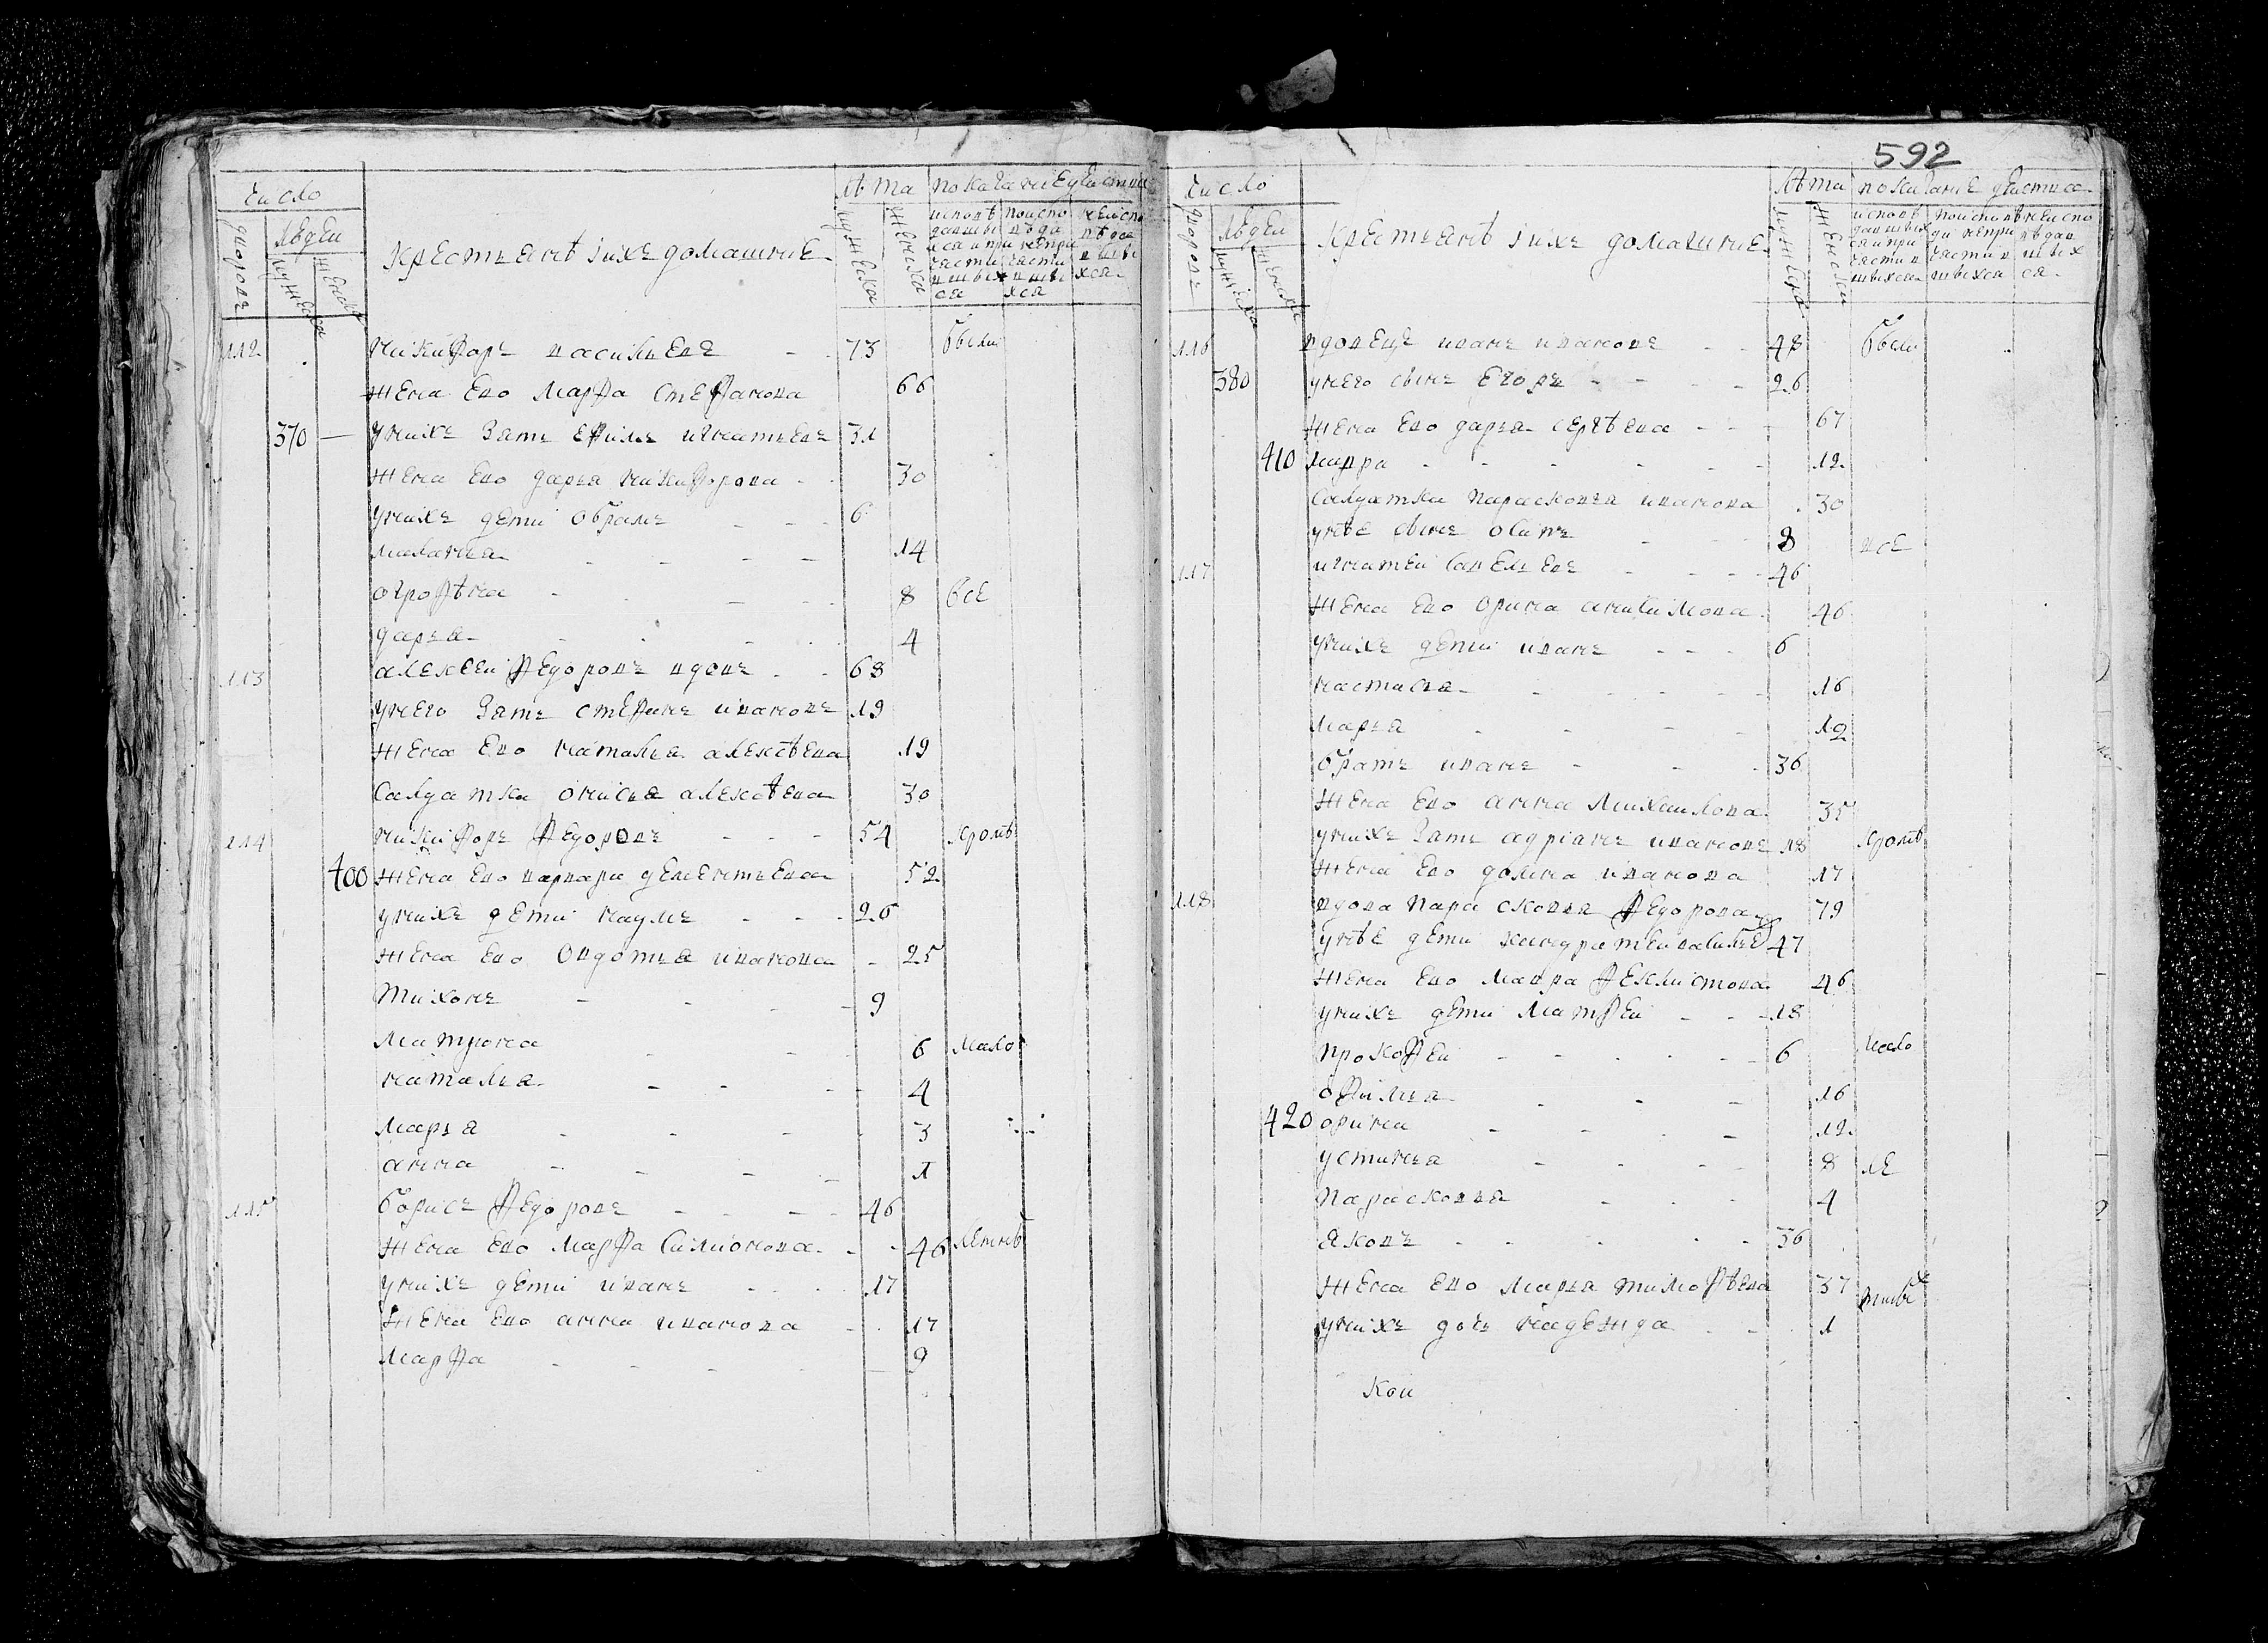 число
дворовъ
людеи
мужеска
женска
крестьянѣ iихъ домашние
лѣта
мужеска
женска
показание
112 никифоръ василъевъ 73 были
жена ево марфа стефанова 66
370 унихъ зять ефимъ игнатьевъ 31
жена ево дарья никифорова 30
унихъ дети обрамъ 6
маланья 14
огрофѣна 8 все
дарья 4
113 алексеи федоровъ вдовъ 68
унего зять стефанъ ивановъ 19
жена ево наталья алексѣева 19
салдатка онисья алексѣева 30
114 никифоръ федоровъ 54 кромѣ
400 жена ево варвара деменьтьева 52
унихъ дети наумъ 26
жена ево овдотья иванова 25
тихонъ 9
матрона 6 мало
наталья 4
марья 3
анна 1
115 борисъ федоровъ 46
жена ево марфа симионова 46 летнѣ
унихъ дети иванъ 17
жена ево анна иванова 17
марфа 9
592
число
дворовъ
людеи
мужеска
женска
крестьянѣ iихъ домашние
лѣта
мужеска
женска
показание
116 вдовецъ иванъ ивановъ 48 были
380 унего сынъ егоръ 26
жена ево дарья сергѣева 67
410 мавра 12
салдатка парасковья иванова 30
унѣе сынъ осипъ 8 все
117 игнатеи савельевъ 46
жена ево орина анисимова 46
унихъ дети иванъ 6
настасья 16
марья 12
братъ иванъ 36
жена ево анна михаилова 35
унихъ зять адрiанъ ивановъ 18 кромѣ
жена ево домна иванова 17
118 вдова парасковья федорова 79
унѣе дети канъдратеи васильев 47
жена ево мавра феклистова 46
унихъ дети матфеи 18
прокофеи 6 мало
офимья 16
420 орина 12
устинья 8 ле
парасковья 4
яковъ 36
жена ево марья тимофѣева 37 тныхъ
унихъ дочь надежда 1
Кои